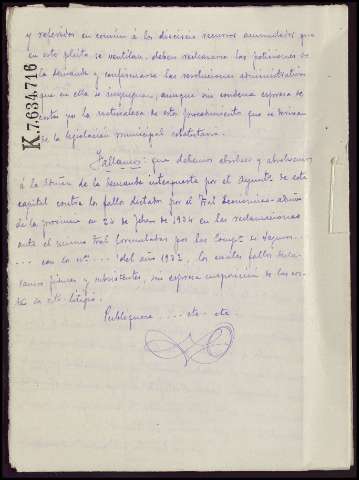 y referidos en común á los dieciseis recursos acumulados que
en este pleito se ventilan, deben rechazarse las peticiones de
la demanda y confirmarse las resoluciones administrativas
que en ella se impugnan, aunque sin condena expresa de
costas por la naturaleza de este procedimiento que se deriva
de la legislación municipal estatutaria.
Fallamos: que debemos absolver y absolvemos
á la Admón de la demanda interpuesta por el Ayuntº de esta
capital contra los fallos dictados por el Tral Económico-admvo
de la provincia en 20 de Febro de 1934 en las reclamaciones
ante el mismo Tral formuladas por las Compª de Seguros...
... con los nºs ... del año 1932, los cuales fallos decla-
ramos firmes y subsistentes, sin expresa imposición de las cos-
tas de este litigio.
Publíquese ... etc. etc.
K.7,634,716